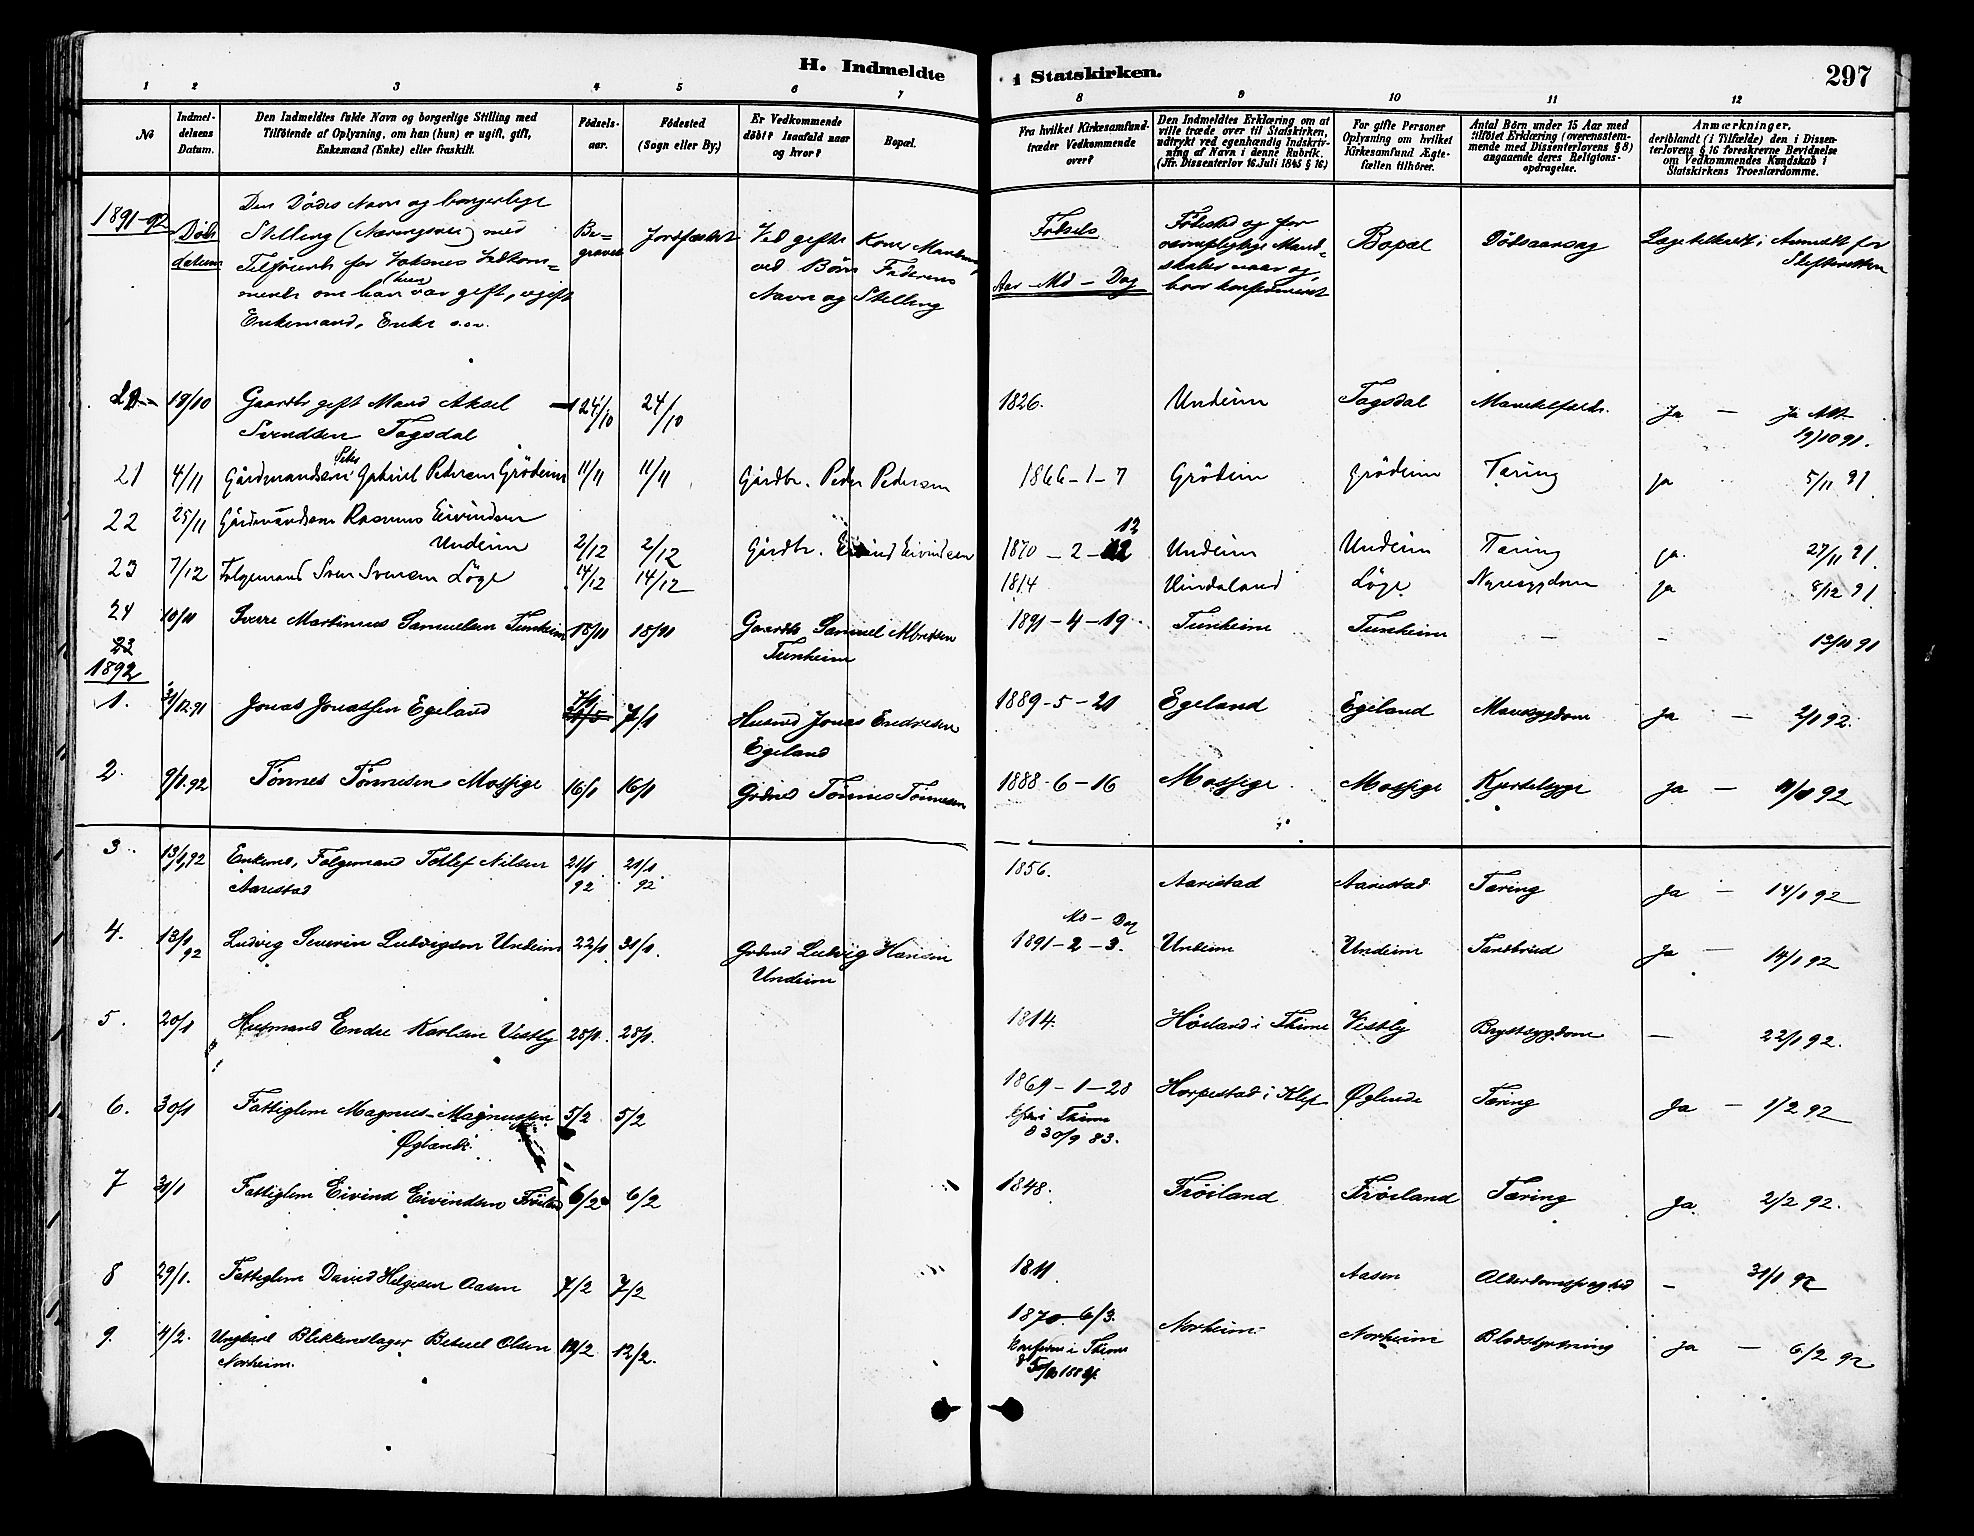 H. Indmeldte i Statskirken. 297
1 2 3 4 5 6 7 8 9 10 11 12
No
Indmel-
delsens
Datum.
Den Indmeldtes fulde Navn og borgerlige Stilling med
Tilföiende af Oplysning, om han (hun) er ugift, gift,
Enkemand (Enke) eller fraskilt.
Födsels-
aar.
Födested
(Sogn eller By.)
Er Vedkommende
döbt? Isaafald naar
og hvor?
Bopæl.
Fra hvilket Kirkesamfund
træder Vedkommende
over?
Den Indmeldtes Erklæring om at
ville træde over til Statskirken,
udtrykt ved egenhændig Indskriv-
ning af Navn i denne Rubrik.
(Jfr. Dissenterlov 16 Juli 1845 § 16.)
For gifte Personer
Oplysning om hvilket
Kirkesamfund Ægte-
fællen tilhörer.
Antal Börn under 15 Aar med
tilföiet Erklæring (overensstem-
mende med Dissenterlovens § 8)
angaaende deres Religions-
opdragelse.
Anmærkninger,
deriblandt (i Tilfælde) den i Dissen-
terlovens § 16 foreskrevne Bevidnelse
om Vedkommendes Kundskab i
Statskirkens Troeslærdomme.
1891-92
Døds
datum
Den Dødes Navn og borgerlige
Stilling (Næringsvei) med
Tilføiende for Voksnes Vedkom-
mende om han (hun) var gift, ugift
Enkemand, Enke o.s.v.
Be-
gravet
Jordfæstet
Ved gifte Koner Mandens
ved Børn Faderens
Navn og Stilling
Fødsels
Aar - Md - Dag
Fødested og for
værnepligtige Mand-
skaber naar og
hvor konfirmeret
Bopæl
Dødsaarsag
Lægetilsyn; Anmeldt for
Skifteretten
18/10 Gaardbr gift Mand Aksel 24/10 24/10 1826. Undeim Tagsdal Ja - Ja
Svendsen Tagsdal 19/10 91.
21 4/11 Gårdmandssøn Gabriel Pedersen Grödeim 11/11 11/11 Gårdbr. Peder Pedersen 1866-1-7 Grödeim Grödeim Tæring ja 5/11 91
22 25/11 Gårdmandssøn Rasmus Eivindsen
Undeim 2/12 2/12 Gårdbr. Eivind Eivindsen 1870-2-12 Undeim Undeim Tæring ja. 27/11 91.
23 7/12 Folgemand Sven Svensen Löge 14/12 14/12 1814 Löge Nyresygdom ja 8/12 91
24 10/11 Sverre Martinius Samuelsen Tunheim 18/11 18/11 Gaardbr Samuel Albretsen 1891-4-19 Tunheim Tunheim - - 13/11 91
Tunheim
23
1892
1. 31/12 91 Jonas Jonassen Egeland 7/1 7/1 Husmd Jonas Endresen 1889-5-21 Egeland Egeland Mavesygdom Ja - 2/1 92.
Egeland
2. 9/1 92 Tönnes Tönnesen Mossige 16/1 16/1 Grdmd Tönnes Tönnesen 1888-6-16 Mossige Mossige Kjertelsyge Ja - 11/1 92
3. 13/1 92 Enkemd, Folgemand Tollef Nilsen 21/1 92 21/1 92. 1856. Aarestad Aarestad Tæring Ja - 14/1 92
Aarestad
4. 13/1 92 Ludvig Severin Ludvigsen Undeim 22/1 31/1 Grdmd Ludvig Hansen Md - Dag 1891-2-3. Undeim Undeim Tandbrud Ja - 14/1 92
Undeim
5. 20/1 Husmand Endre Karlsen Vestly 28/1. 28/1. 1814. Høiland i Thime Vestly Brystsygdom - 22/1 92.
6. 30/1 Fattiglem Magnus Magnussen 5/2 5/2 1869-1-28 Horpestad i Klep Øglende Tæring Ja - 1/2 92
Øglænde i Thime
30/9 83.
7 31/1 Fattiglem Eivind Eivindsen Fröiland 6/2 6/2 1848. Fröiland Fröiland Tæring Ja 2/2 92.
8 29/1. Fattiglem David Helgesen Aasen 7/2 7/2 1811. Aasen Alderdomssvaghed - 31/1 92
9. 4/2. Ungkarl Blikkenslager Betuel Olsen 12/2 12/2. 1870 6/3. Norheim Norheim Blodstyrtning Ja - 6/2 92
Norheim. Konfirm i Thime